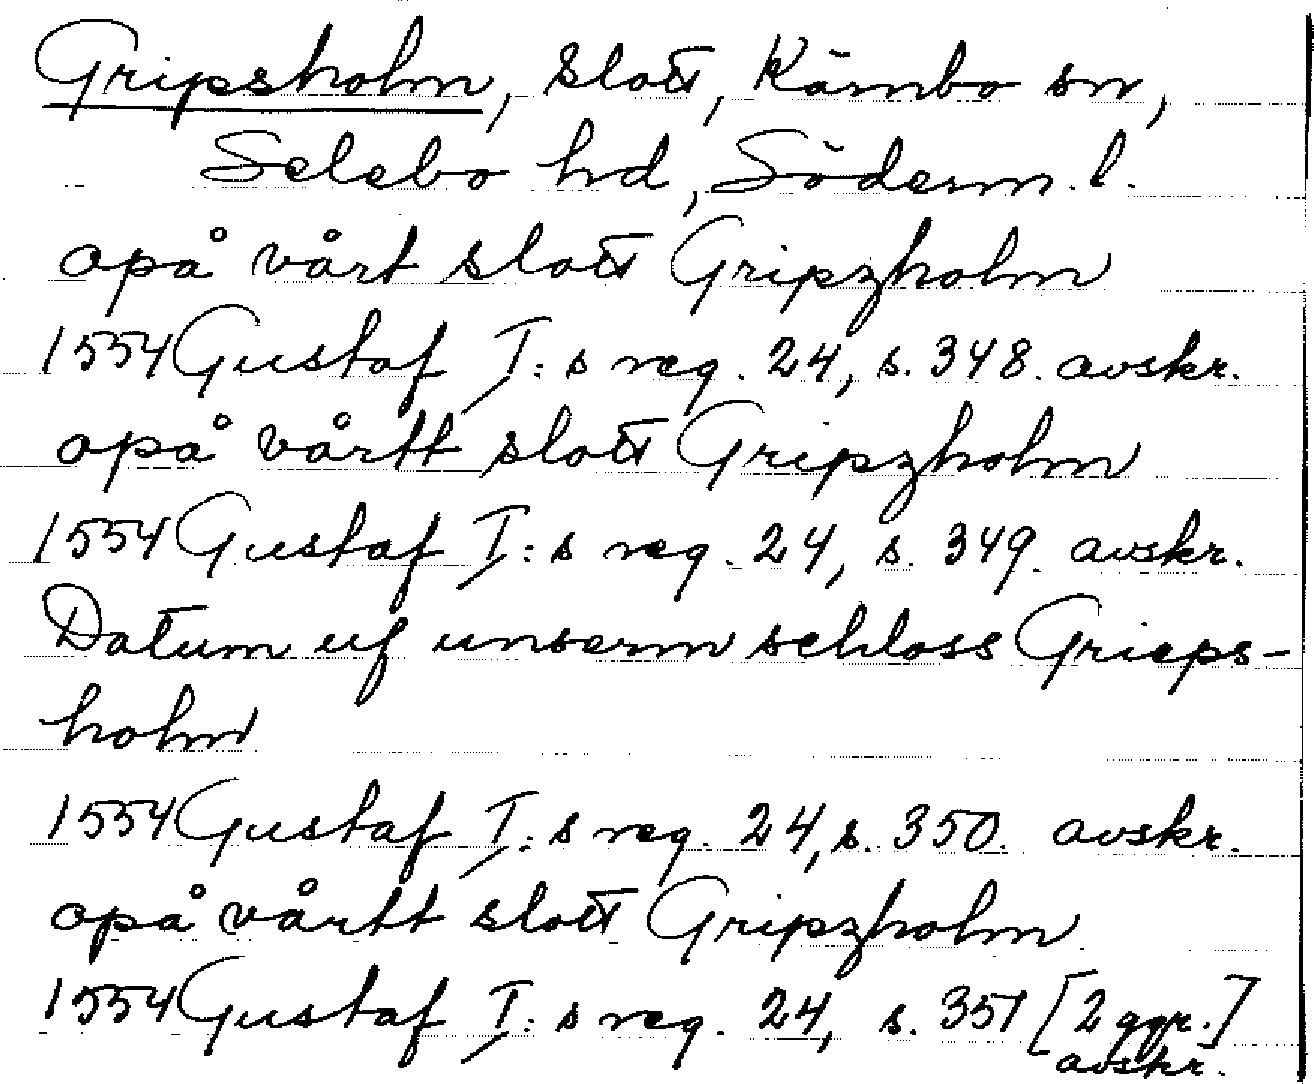 Gripsholm, slott, Kärnbo sn,
Selebo hd, Söderm. l.
opå vårt slott Gripzholm
1554 Gustaf I:s reg. 24, s. 348. avskr.
opå vårtt slott Gripzholm
1554 Gustaf I:s reg. 24, s. 349. avskr.
Datum uf unserm schloss Grieps-
holm
1554 Gustaf I:s reg. 24, s. 350. avskr.
opå vårtt slott Gripzholm
1554 Gustaf I:s reg. 24, s. 351 [2 ggr.]
avskr.